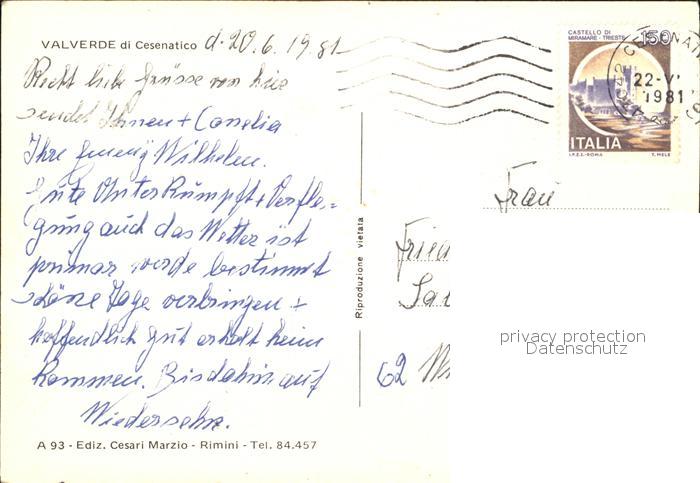 VALVERDE di Cesenatico d. 20.6.1981
Recht liebe Grüsse von hie
sendet Ihnen + Conelia
Ihre Wilhelm.
Gute Unterkumpft + Verfle=
gung auch das Wetter ist
primar werde bestimmt
schöne Tage verbringen +
hoffendlich gut erholt heim
kommen. Bis dahin auf
Wiedersehn.
A 93 - Ediz. Cesari Marzio - Rimini - Tel. 84.457
Riproduzione vietata
CASTELLO DI
MIRAMARE - TRIESTE
150
22-V
1981
ITALIA
I.P.Z.S.-ROMA T. MELE
Frau
Frie
Sa
62 W
privacy protection
Datenschutz